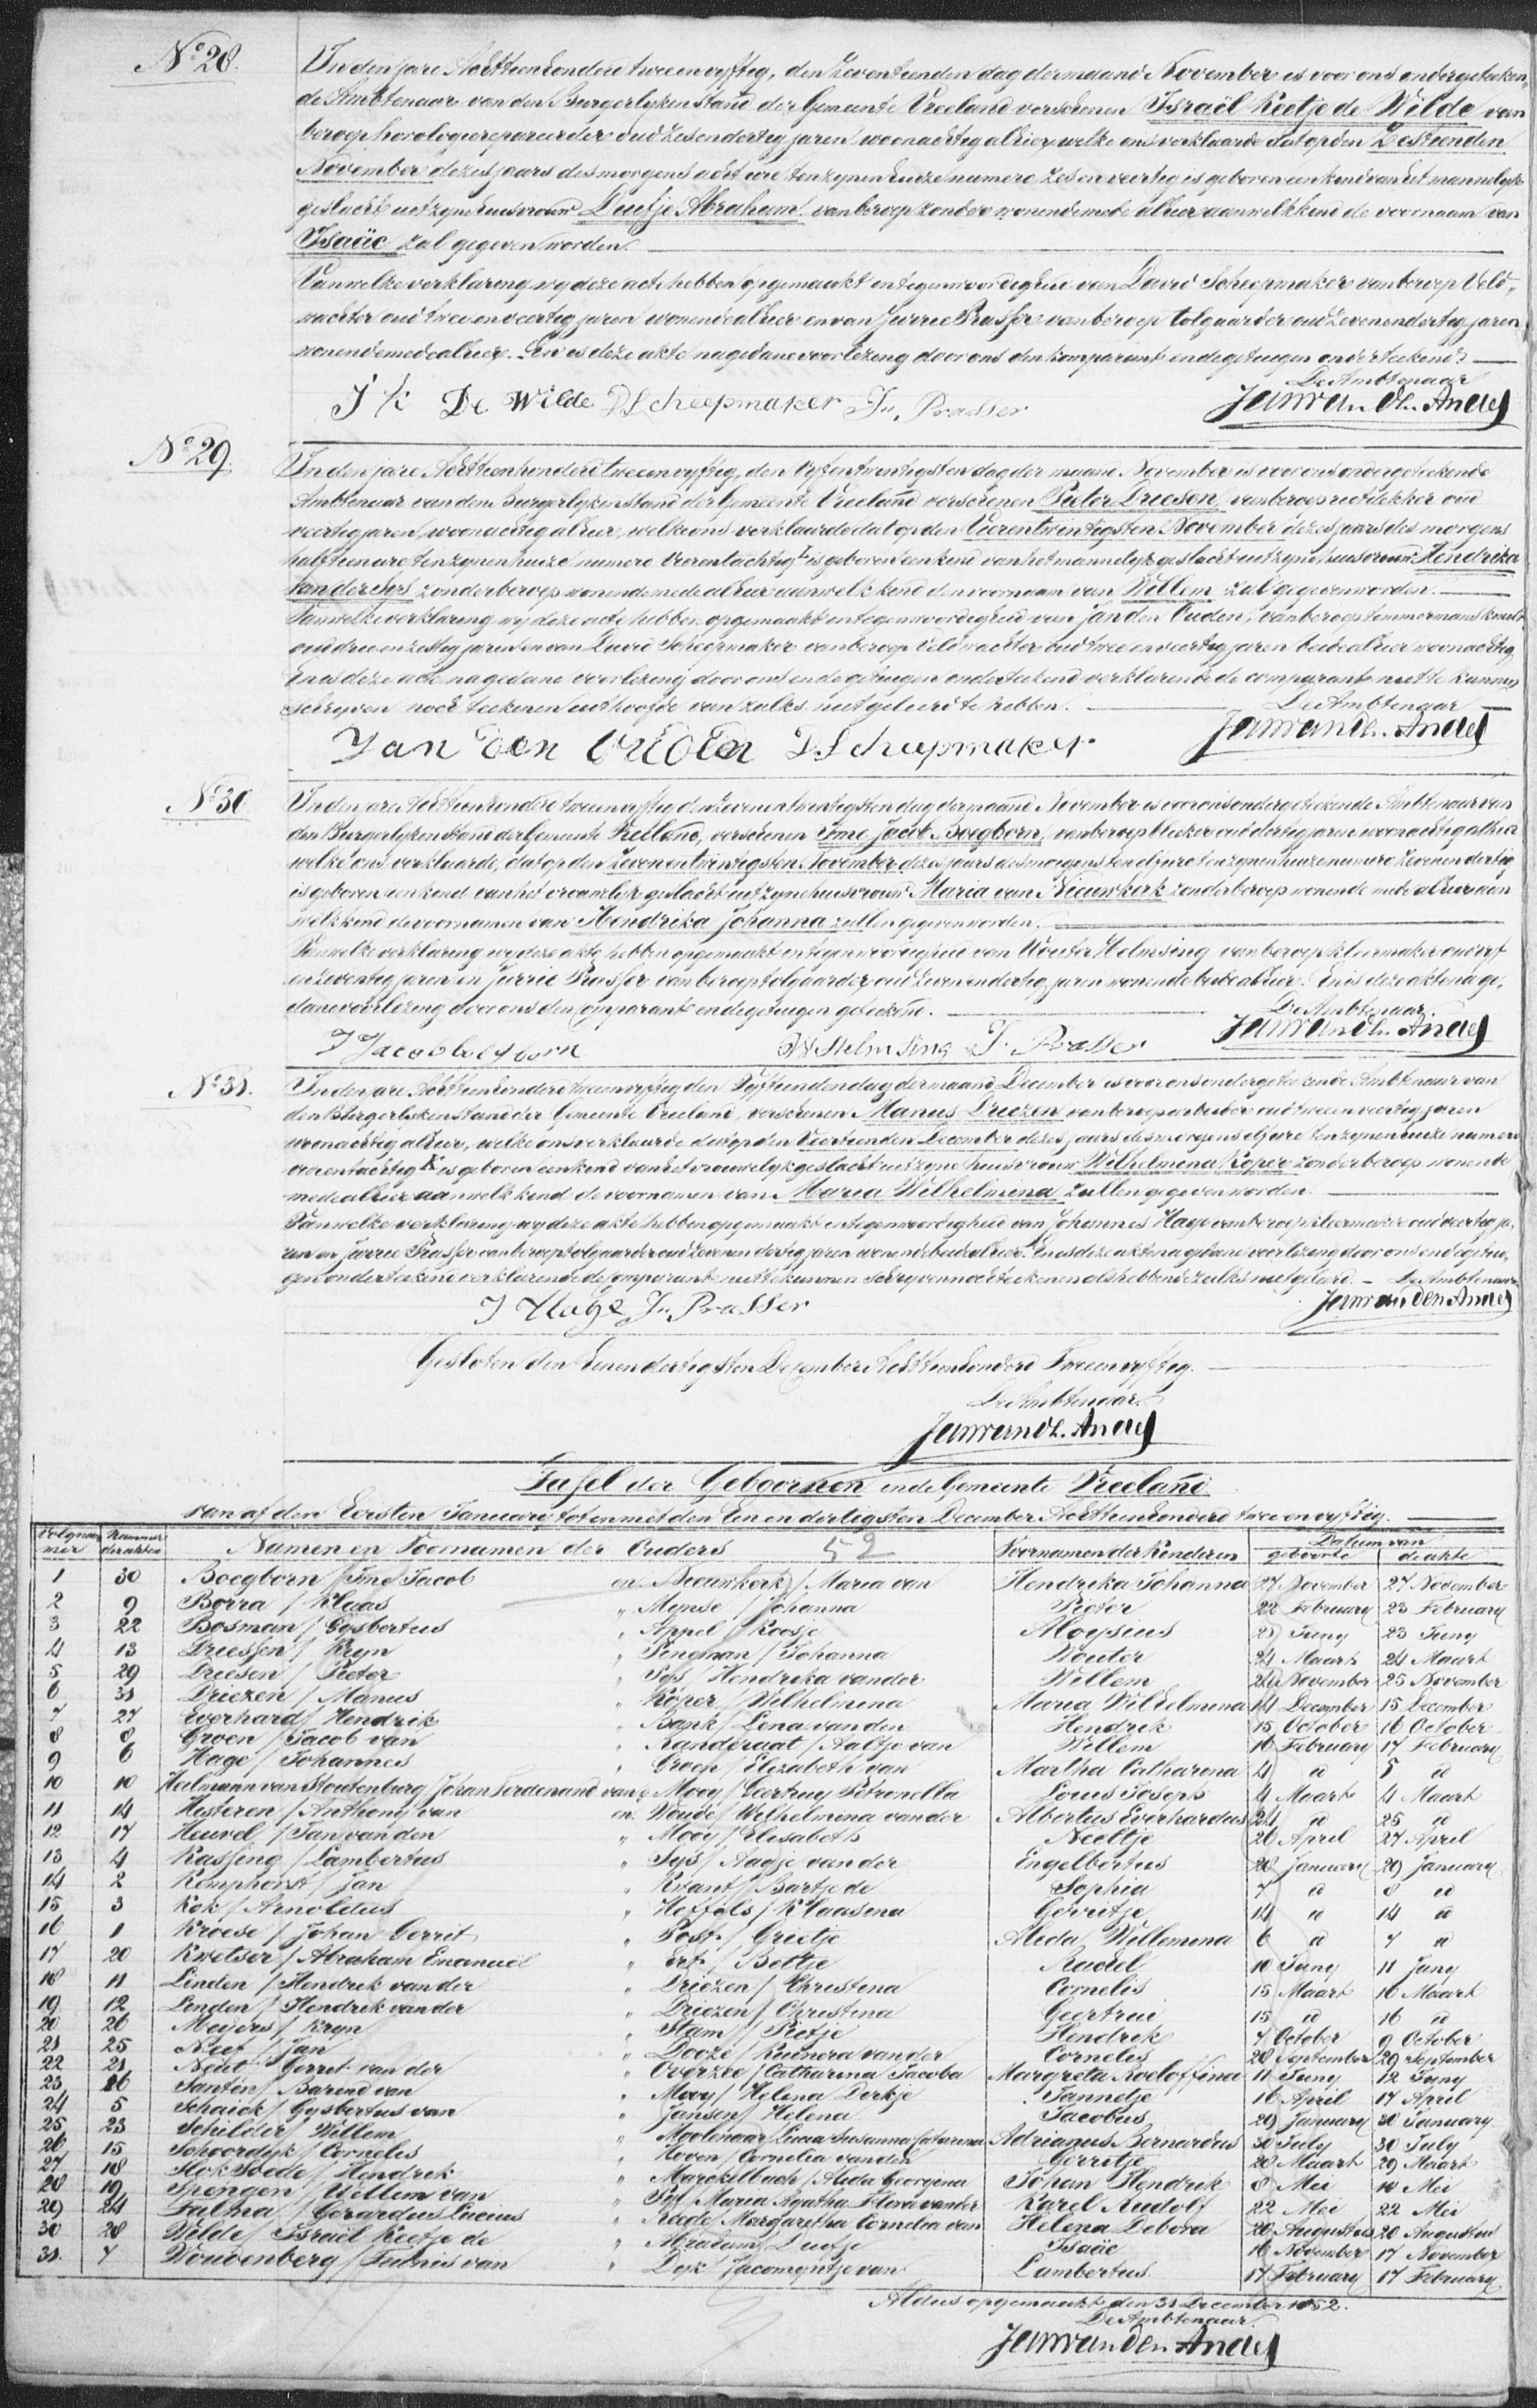 No 28.
In den jare Achttienhonderd twee en vyftig, den Zeventienden dag der maand November is voor ons ondergeteeken-
de Ambtenaar van den Burgerlyken stand der Gemeente Vreeland verschenen Israël Keetje de Wilde van
beroep horologierepareerder oud zes en dertig jaren woonachtig alhier, welke ons verklaarde dat op den Zestienden
November dezes jaars des morgens acht ure ten zynen huize numero zes en veertig is geboren een kind van het mannelyk
geslacht uit zyne huisvrouw Duifje Abraham van beroep zonder wonende mede alhier aan welk kind de voornaam van
Isaäc zal gegeven worden.
Van welke verklaring wy deze acte hebben opgemaakt in tegenwoordigheid van David Scheepmaker van beroep Veld-
wachter oud twee en veertig jaren wonende alhier en van Jurrie Prasser van beroep tolgaarder oud zeven en dertig jaren
wonende mede alhier. En is deze akte na gedane voorlezing door ons den komparant en de getuigen onderteekend.
De Ambtenaar
I K De Wilde D Scheepmaker Ju. Prasser Jan van den Andel
No 29
In den jare Achttienhonderd twee en vyftig, den Vyfentwintigsten dag der maand November is voor ons ondergeteekende
Ambtenaar van den Burgerlyken Stand der Gemeente Vreeland verschenen Pieter Driesen, van beroep rietdekker oud
veertig jaren, woonachtig alhier, welke ons verklaarde dat op den Vierentwintigsten November dezes jaars des morgens
half tien ure ten zynen huize numero Vierentachtig I is geboren een kind van het mannelyk geslacht uit zyne huisvrouw Hendrika
van der Sys zonder beroep wonende mede alhier aan welk kind de voornaam van Willem zal gegeven worden.
Van welke verklaring wy deze acte hebben opgemaakt in tegenwoordigheid van Jan den Ouden, van beroep timmermansknecht
oud drie en zestig jaren en van David Scheepmaker van beroep Veldwachter oud twee en veertig jaren beide alhier woonachtig
En is deze acte na gedane voorlezing door ons en de getuigen onderteekend verklarende de comparant niet te kunnen
schryven noch teekenen uit hoofde van zulks niet geleerd te hebben. De Ambtenaar
Jan den Ouden D Scheepmaker Jan van den Andel
No 30
In den jare Achttienhonderd twee en vyftig den Zevenentwintigsten dag der maand November is voor ons ondergeteekende Ambtenaar van
den Burgerlyken Stand der Gemeente Vreeland, verschenen Ime Jacob Boegborn, van beroep bleeker oud dertig jaren woonachtig alhier
welke ons verklaarde, dat op den Zevenentwintigsten November dezes jaars des morgens ten elf ure ten zynen huize numero zeven en dertig
is geboren een kind van het vrouwelyk geslacht uit zyne huisvrouw Maria van Nieuwkerk zonder beroep wonende mede alhier aan
welk kind de voornamen van Hendrika Johanna zullen gegeven worden.
Van welke verklaring wy deze akte hebben opgemaakt in tegenwoordigheid van Wouter Helmsing van beroep kleermaker oud vyf
en zeventig jaren en Jurrie Prasser van beroep tolgaarder oud zeven en dertig jaren wonende beide alhier. En is deze akte na ge-
dane voorlezing door ons den Comparant en de getuigen geteekend. De Ambtenaar
I Jacob Boegborn W Helmsing J. Prasser Jan van den Andel
No 31.
In den jare Achttienhonderd twee en vyftig den Vyftienden dag der maand December is voor ons ondergeteekende Ambtenaar van
den Burgerlyken Stand der Gemeente Vreeland, verschenen Manus Driezen van beroep arbeider oud twee en veertig jaren
woonachtig alhier, welke ons verklaarde dat op den Veertienden December dezes jaars des morgens elf ure ten zynen huize numero
vierentachtig K is geboren een kind van het vrouwelyk geslacht uit zyne huisvrouw Wilhelmina Köper zonder beroep wonende
mede alhier aan welk kind de voornamen van Maria Wilhelmina zullen gegeven worden.
Van welke verklaring wy deze akte hebben opgemaakt in tegenwoordigheid van Johannes Hage van beroep kleermaker oud veertig ja-
ren en Jurrie Prasser van beroep tolgaarder oud zeven en dertig jaren wonende beide alhier. En is deze akte na gedane voorlezing door ons en de getui-
gen onderteekend verklarende de Comparant niet te kunnen schryven noch teekenen als hebbende zulks niet geleerd. – De Ambtenaar
J Hage Ju. Prasser Jan van den Andel
Gesloten den Eenendertigsten December Achttienhonderd Tweeenvyftig.
De Ambtenaar.
Jan van den Andel
Tafel der Geboornen in de Gemeente Vreeland
van af den Eersten January tot en met den Een en dertigsten December Achttienhonderd twee en vyftig.
Volgnummer Nummer der akten Namen en Voornamen der Ouders 52 Voornamen der Kinderen Datum van geboorte de akte
1 30 Boegborn / Ime Jacob en Nieuwkerk / Maria van Hendrika Johanna 27 November 27 November
2 9 Borra / Klaas " Mynse / Johanna Pieter 22 February 23 February
3 22 Bosman / Gysbertus " Appel / Roosje Aloysius 21 Juny 23 Juny
4 13 Driessen / Kryn " Pingman / Johanna Wouter 24 Maart 24 Maart
5 29 Driesen / Pieter " Sys / Hendrika van der Willem 24 November 25 November
6 31 Driezen / Manus " Köper / Wilhelmina Maria Wilhelmina 14 December 15 December
7 27 Everhard / Hendrik " Bank / Lena van den Hendrik 15 October 16 October
8 8 Groen / Jacob van " Randeraat / Aaltje van Willem 16 February 17 February
9 6 Hage / Johannes " Groen / Elizabeth van Martha Catharina 4 d 5 d
10 10 Heilmann van Stoutenburg / Johan Ferdenand van en Mooy / Geertruy Petronella Louis Joseph 4 Maart 4 Maart
11 14 Hesteren / Anthony van en Woude / Wilhelmina van der Albertus Everhardus 24 d 25 d
12 17 Heuvel / Jan van den " Mooy / Elisabeth Neeltje 26 April 27 April
13 4 Kassing / Lambertus " Sys / Aagje van der Engelbertus 28 January 29 January
14 2 Komphorst / Jan " Kwant / Bartje de Sophia 7 d 8 d
15 3 Kok / Arnoldus " Heffels / Klaasena Gerritje 14 d 14 d
16 1 Kroese / Johan Gerrit " Post / Grietje Aleda Willemina 6 d 7 d
17 20 Kwetser / Abraham Emanuël " Ert / Bettje Rachel 10 Juny 11 Juny
18 11 Linden / Hendrik van der " Driezen / Christina Cornelis 15 Maart 16 Maart
19 12 Linden / Hendrik van der " Driezen / Christina Geertrui 15 d 16 d
20 26 Meyers / Kryn " Stam / Pietje Hendrik 7 October 9 October
21 25 Neef / Jan " Dooze / Reinera van der Cornelis 28 September 29 September
22 21 Neut / Gerrit van der " Overzee / Catharina Jacoba Margreta Roeloffina 11 Juny 12 Juny
23 16 Santen / Barend van " Mooy / Helena Derkje Jannetje 16 April 17 April
24 5 Schaick / Gysbertus van " Jansen / Helena Jacobus 29 January 30 January
25 23 Schilder / Willem " Moolenaar / Lucia Susanna Catarina Adrianus Bernardus 30 July 30 July
26 15 Schoordyk / Cornelis " Hoven / Cornelia van den Gerritje 28 Maart 29 Maart
27 18 Slok Soede / Hendrik " Marckelbach / Aleda Georgina Johan Hendrik 8 Mei 10 Mei
28 19 Spengen / Willem van " Sys / Maria Agatha Flora van der Karel Rudolf 22 Mei 22 Mei
29 24 Talma / Gerardus Lucius " Rade / Margaretha Cornelia van Helena Debora 20 Augustus 20 Augustus
30 28 Wilde / Israël Keetje de " Abraham / Duifje Isaäc 16 November 17 November
31. 7 Wouvenberg / Teunis van " Dyk / Jacomyntje van Lambertus 17 February 17 February
Aldus opgemaakt den 31 December 1852.
De Ambtenaar.
Jan van den Andel